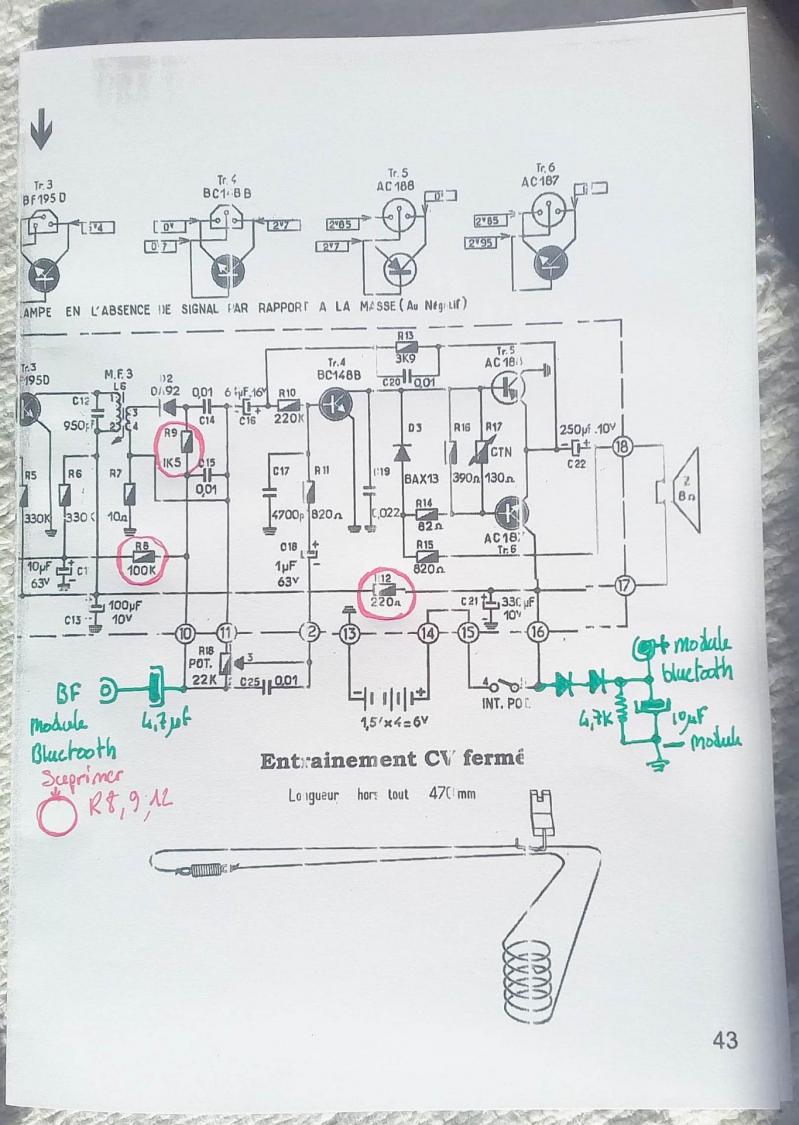 Tr.3
BF195D
Tr.4
Tr.5
AC188
Tr.6
AC187
0V
2V7
2V85
2V7
2V85
2V95
AMPE EN L'ABSENCE DE SIGNAL PAR RAPPORT A LA MASSE (Au Négatif)
Tr.3
195D
M.F.3
L6
D2
0,01
C14
16V
C16
R10
220K
Tr.4
BC148B
R13
3K9
C20 0,01
Tr.5
C12
950pF
2 3 4
R9
1K5
C15
0,01
R5
330K
R6
R7
10Ω
C17
4700p
R11
820Ω
C19
D3
BAX13
R16
390Ω
R17
CTN
130Ω
250µF.10V
C22
18
Z
8Ω
R14
82Ω
Tr.6
R15
820Ω
R8
100K
10µF
63V
C18
1µF
63V
220Ω
C21
10V
17
100µF
10V
C13
10
11
2
13
14
15
16
R18
POT.
22K
3
C25 0,01
1,5V×4=6V
4
INT. POT.
BF
module
Bluetooth
4,7µF
+ module
bluetooth
4,7K
10µF
- module
Suprimer
R8,9,12
Entrainement CV fermé
Longueur hors tout 470 mm
43